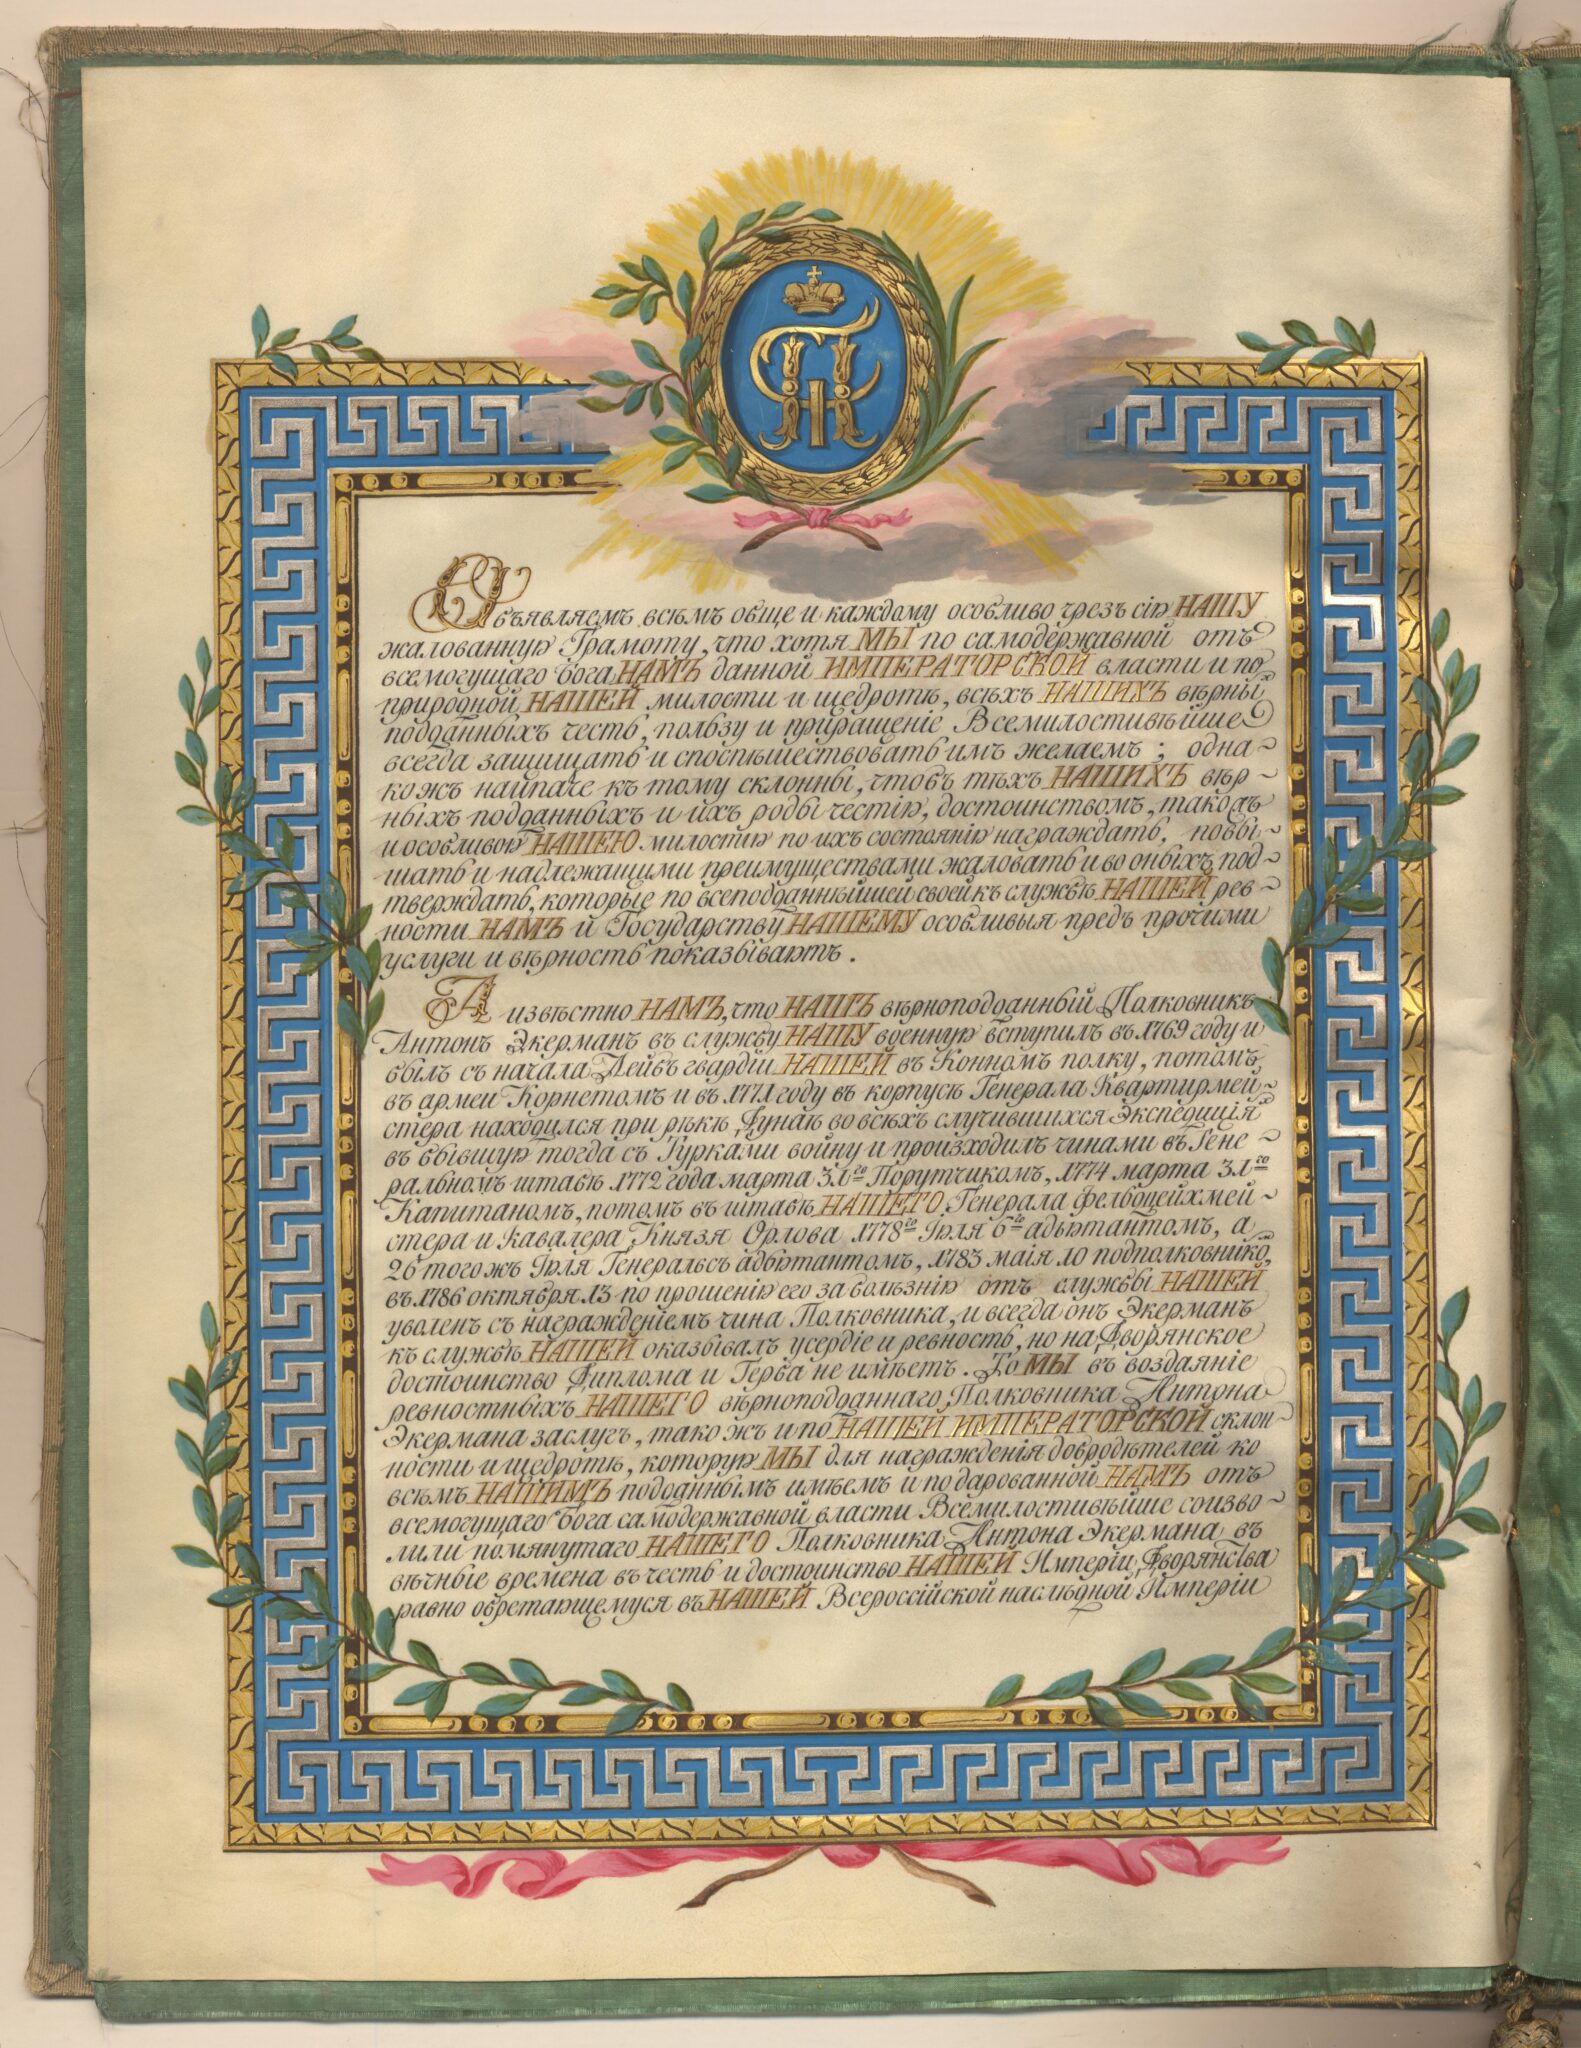 Объявляемъ всѣмъ обще и каждому особливо чрезъ сію НАШУ
жалованную Грамоту, что хотя МЫ по самодержавной отъ
всемогущаго бога НАМЪ данной ИМПЕРАТОРСКОЙ власти и по
природной НАШЕЙ милости и щедротѣ, всѣхъ НАШИХЪ вѣрныхъ
подданныхъ честь, пользу и приращеніе Всемилостивѣйше
всегда защищать и споспѣшествовать имъ желаемъ; одна-
кожъ найпаче къ тому склонны, чтобъ тѣхъ НАШИХЪ вѣр-
ныхъ подданныхъ и ихъ роды честію, достоинствомъ, такожъ
и особливою НАШЕЮ милостію по ихъ состоянію награждать, повы-
шать и надлежащими преимуществами жаловать и во оныхъ под-
тверждать, которые по всеподданнѣйшей своей къ службѣ НАШЕЙ рев-
ности НАМЪ и Государству НАШЕМУ особливыя предъ прочими
услуги и вѣрность показываютъ.
А извѣстно НАМЪ, что НАШЪ вѣрноподданный Полковникъ
Антонъ Экерманъ въ службу НАШУ военную вступилъ въ 1769 году и
былъ съ начала Лейбъ гвардіи НАШЕЙ въ Конномъ полку, потомъ
въ армеи Корнетомъ и въ 1771 году въ корпусѣ Генерала Квартирмей-
стера находился при рѣкѣ Дунаѣ во всѣхъ случившихся Экспедиціяхъ
въ бывшую тогда съ Турками войну и происходилъ чинами въ Гене-
ральномъ штабѣ 1772 года марта 31го Порутчикомъ, 1774 марта 31го
Капитаномъ, потомъ въ штабѣ НАШЕГО Генерала Фельдцейхмей-
стера и Кавалера Князя Орлова 1778го Іюля 6го адъютантомъ, а
26 тогожъ Іюля Генеральсъ адъютантомъ, 1783 маія 10 подполковникомъ,
въ 1786 октября 13 по прошенію его за болѣзнію отъ службы НАШЕЙ
уволенъ съ награжденіемъ чина Полковника, и всегда онъ Экерманъ
къ службѣ НАШЕЙ оказывалъ усердіе и ревность, но на Дворянское
достоинство Диплома и Герба не имѣетъ. То МЫ въ воздаяніе
ревностныхъ НАШЕГО вѣрноподданнаго Полковника Антона
Экермана заслугъ, такожъ и по НАШЕЙ ИМПЕРАТОРСКОЙ склон-
ности и щедротѣ, которую МЫ для награжденія добродѣтелей ко
всѣмъ НАШИМЪ подданнымъ имѣемъ и по дарованной НАМЪ отъ
всемогущаго бога самодержавной власти Всемилостивѣйше соизво-
лили помянутаго НАШЕГО Полковника Антона Экермана въ
вѣчные времена въ честь и достоинство НАШЕЙ Имперіи Дворянства
равно обретающемуся въ НАШЕЙ Всероссійской наслѣдной Имперіи